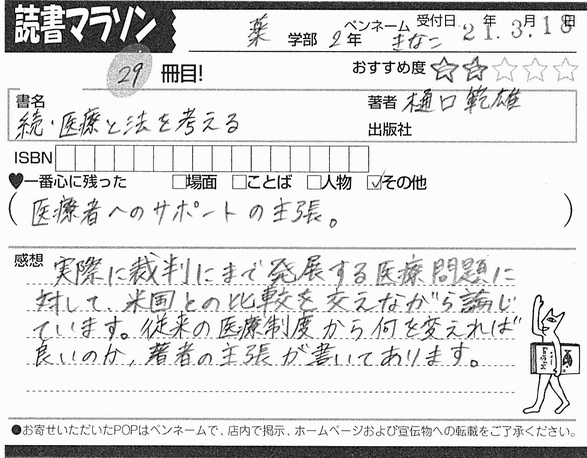 読書マラソン
薬 学部 2年 ペンネーム きなこ 受付日 21年 3.月 18日
29 冊目! おすすめ度 ☆☆☆☆☆
書名 続・医療と法を考える 著者 樋口範雄
出版社
ISBN
♥一番心に残った □場面 □ことば □人物 ☑その他
(医療者へのサポートの主張。)
感想 実際に裁判にまで発展する医療問題に
対して、米国との比較を交えながら論じ
ています。従来の医療制度から何を変えれば
良いのか、著者の主張が書いてあります。
●お寄せいただいたPOPはペンネームで、店内で掲示、ホームページおよび宣伝物への転載をご了承ください。